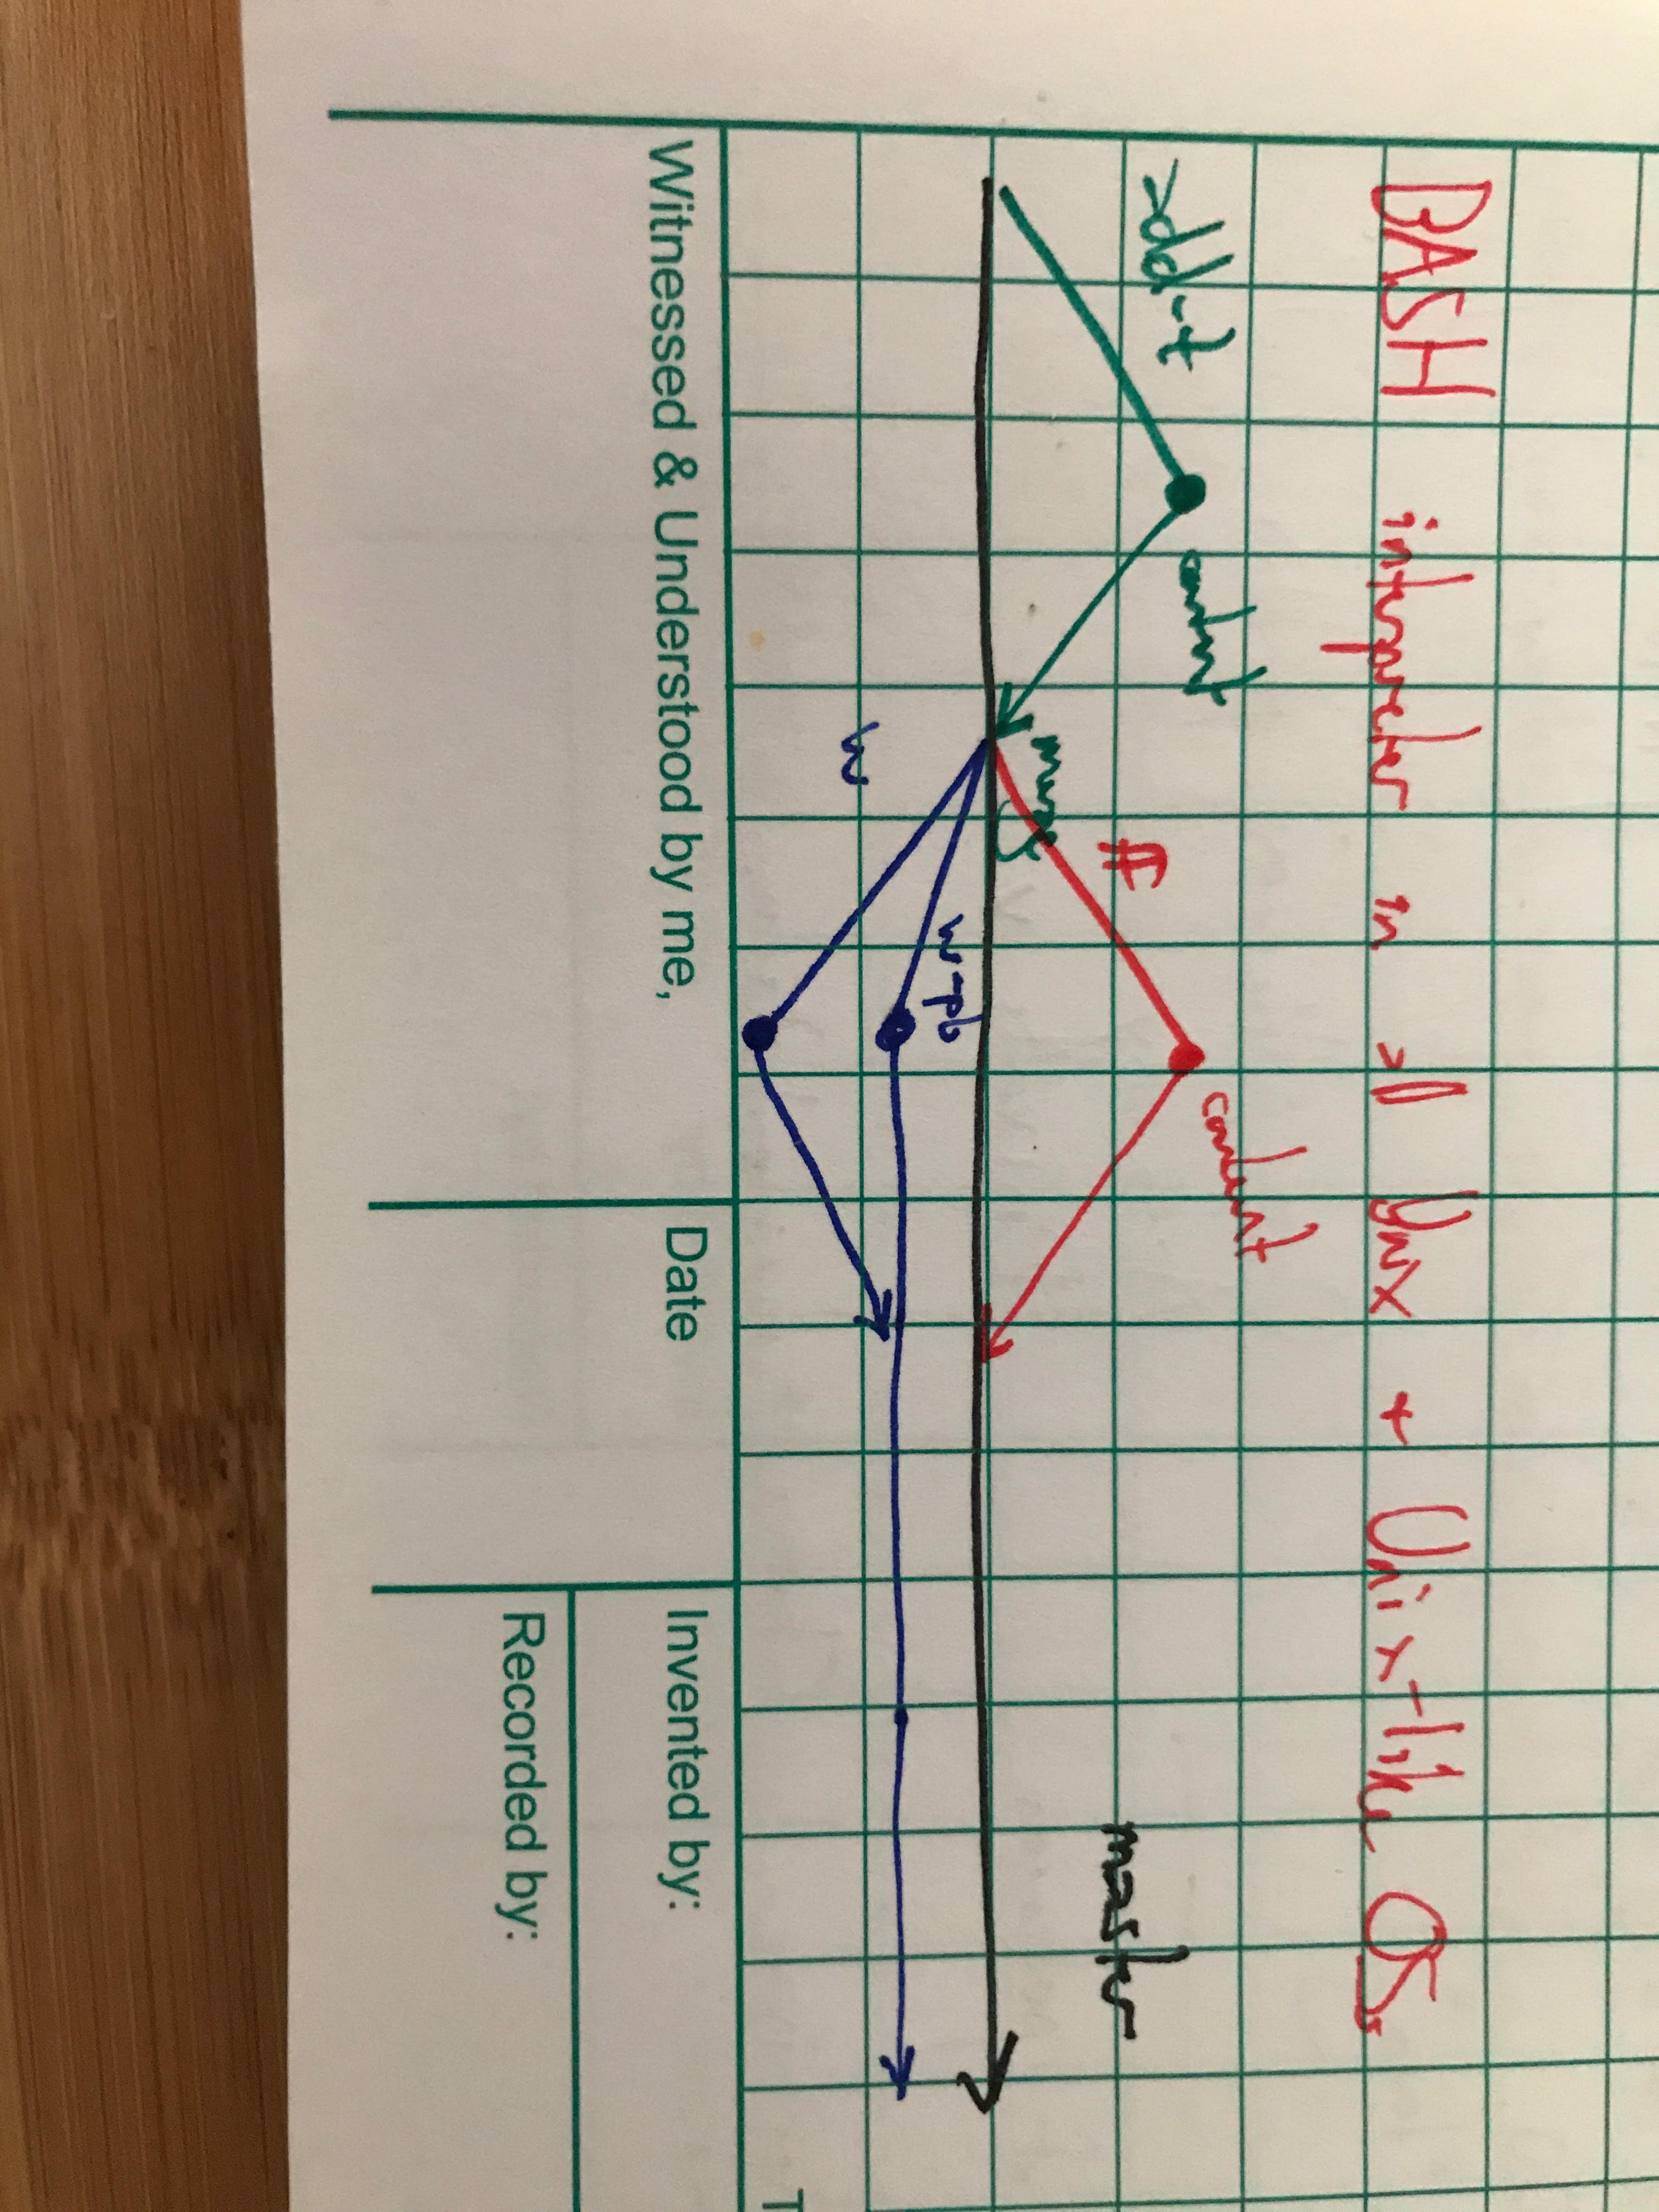 BASH interpreter in all Unix + Unix-like OS
add-t
commit
merge
ff
commit
w
w-pb
master
Witnessed & Understood by me,
Date
Invented by:
Recorded by: